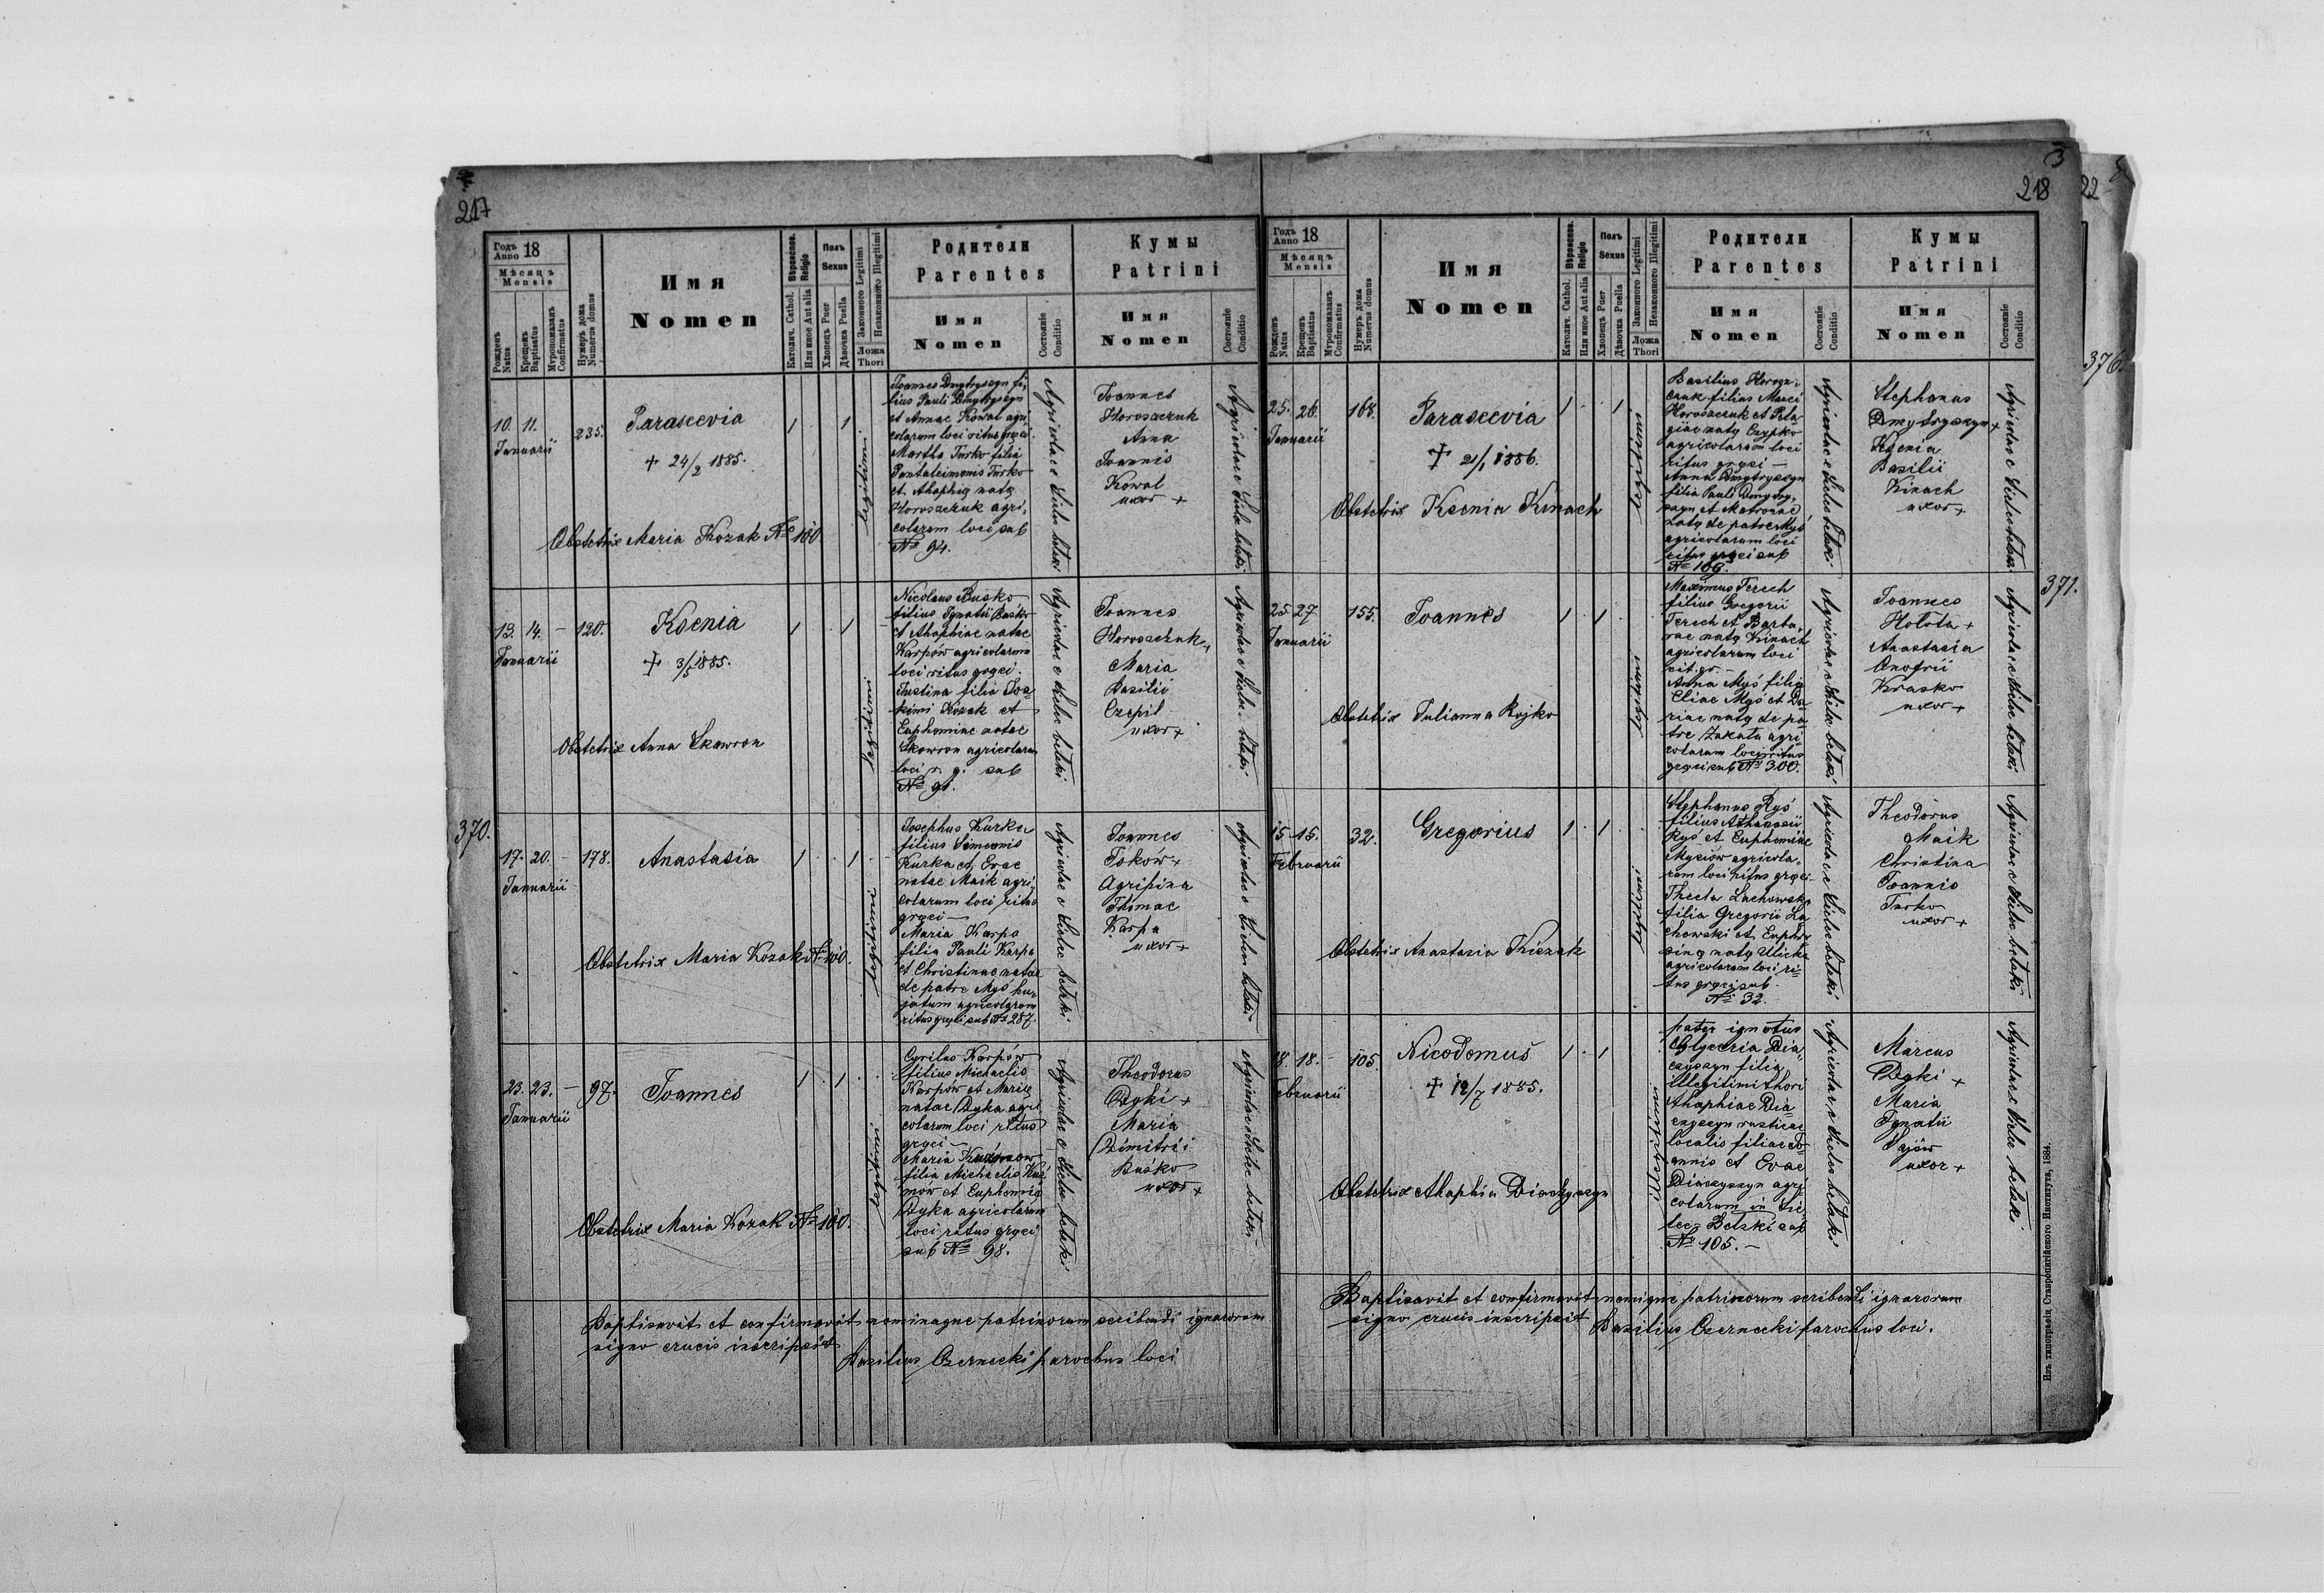 217
Годъ Anno 18
Мѣсяцъ
Mensis
Рожденъ Natus
Крещенъ Baptisatus
Муропомазанъ Confirmatus
Нумеръ дома Numerus domus
Имя
Nomen
Вѣроисповѣд. Religio
Католич. Cathol.
Или иное Aut alia
Полъ
Sexus
Хлопецъ Puer
Дѣвочка Puella
Законного Legitimi
Незаконного Illegitimi
Ложа
Thori
Родители
Parentes
Имя
Nomen
Состояніе
Conditio
Кумы
Patrini
Имя
Nomen
Состояніе
Conditio
10. 11.
Januarii
235.
Parascevia
+ 24/2 1885.
Obstetrix Maria Kozak No 100
legitimi
Joannes Dmytryszyn fi-
lius Pauli Dmytryszyn
et Annae Kowal agri
colarum loci ritus graeci
Martha Turko filia
Pantaleimonis Turko
et Ahaphia nata
Horoszczuk agri-
colarum loci sub
No 94.
Joannes
Horoszczuk
Anna
Joannis
Kowal
uxor +
13. 14. –
Januarii
120.
Ksenia
+ 3/5 1885.
Obstetrix Anna Skowron
legitimi
Nicolaus Busko
filius Ignatii Busko
et Ahaphiae natae
Karpów agricolarum
loci ritus graeci.
Justina filia Joa-
kimi Kozak et
Euphemiae natae
Skowron agricolarum
loci r. g. sub
No 91.
Joannes
Horoszczuk +
Maria
Basilii
Czepil
uxor +
370.
17. 20. –
Januarii
178.
Anastasia
Obstetrix Maria Kozak No 100.
legitimi
Josephus Kurka
filius Simeonis
Kurka et Evae
natae Maik agri-
colarum loci ritus
graeci –
Maria Karpa
filia Pauli Karpa
et Christinae natae
de patre Myś hu-
jatum agricolarum
ritus graeci sub No 287.
Joannes
Toków +
Agripina
Thomae
Karpa
uxor +
23. 23. –
Januarii
97.
Joannes
Obstetrix Maria Kozak No 100.
legitimi
Cyrilus Karpów
filius Michaelis
Karpów et Mariae
natae Dyka agri
colarum loci ritus
graeci –
Maria
filia Michaelis
et Euphemia
Dyka agricolarum
loci ritus graeci
sub No 98.
Theodorus
Dyki +
Maria
Dimitrii
Busko
uxor +
Baptisavit et confirmavit nominaque patrinorum scribendi ignarorum
signo crucis inscripsit
Basilius Czernecki parochus loci
3
218
Годъ Anno 18
Мѣсяцъ
Mensis
Рожденъ Natus
Крещенъ Baptisatus
Муропомазанъ Confirmatus
Нумеръ дома Numerus domus
Имя
Nomen
Католич. Cathol.
Или иное Aut alia
Полъ
Sexus
Хлопецъ Puer
Дѣвочка Puella
Законного Legitimi
Незаконного Illegitimi
Ложа
Thori
Родители
Parentes
Имя
Nomen
Состояніе
Conditio
Кумы
Patrini
Имя
Nomen
Состояніе
Conditio
25. 26.
Januarii
168.
Parascevia
+ 21/1 1886.
Obstetrix Ksenia Kinach
legitimi
Basilius Horosz-
czuk filius Marci
Horoszczuk et Pela-
giae nata Czypko
agricolarum loci
ritus graeci –
Anna Dmytryszyn
filia Pauli Dmytry-
szyn et Matronae
nata de patre Myś
agricolarum loci
ritus graeci sub
No 106.
Stephanus
Dmytryszyn +
Ksenia
Basilii
Kinach
uxor +
371.
25. 27
Januarii
155.
Joannes
Obstetrix Julianna Rojko
legitimi
Maximus Terech
filius Gregorii
Terech et Barba-
rae nata Kinach
agricolarum loci
rit. gr. –
Anna Myś filia
Eliae Myś et Da-
riae nata de pa-
tre Zakala agri-
colarum loci ritus
graeci sub No 300.
Joannes
Holota +
Anastasia
Onofrii
Krasko
uxor +
15. 15.
Februarii
32.
Gregorius
Obstetrix Anastasia Kiczak
legitimi
Stephanus Ryś
filius Athanasii
Ryś et Euphemiae
Myciów agricola-
rum loci ritus graeci –
Thecla Lachowska
filia Gregorii La
chowski et Euphro
sina nata Ulicka
agricolarum loci ri-
tus graeci sub
No 32.
Theodorus
Maik
Christina
Joannis
Turko
uxor +
18. 18. –
Februarii
105.
Nicodomus
+ 12/7 1885.
Obstetrix Ahaphia Diaczyszyn
illegitimi
pater ignotus
Glyceria Dia-
czyszyn filia
illegitimi thori
Ahaphiae Dia-
czyszyn rusticae
localis filiae Jo-
annis et Evae
Diaczyszyn agri
colarum in Sie
lec-Belski sub
No 105. –
Marcus
Dyki +
Maria
Ignatii
Pajów
uxor +
Baptisavit et confirmavit nomique patrinorum scribendi ignarorum
signo crucis inscripsit
Basilius Czernecki parochus loci.
Изъ типографіи Ставропигійского Института, 1884.
22
376.